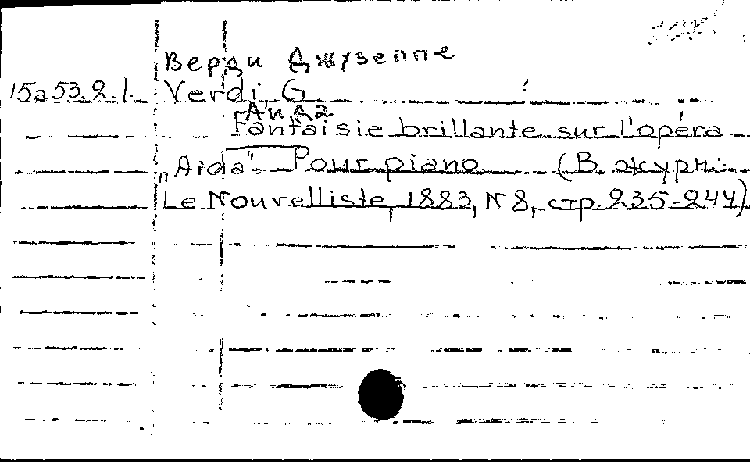 Верди Джузеппе
15a53.2.1. Verdi G.
Аида
Fantaisie brillante sur l'opéra
„Aida" Pour piano (В журн.:
Le Nouvelliste, 1883, N 8, стр. 235-244)